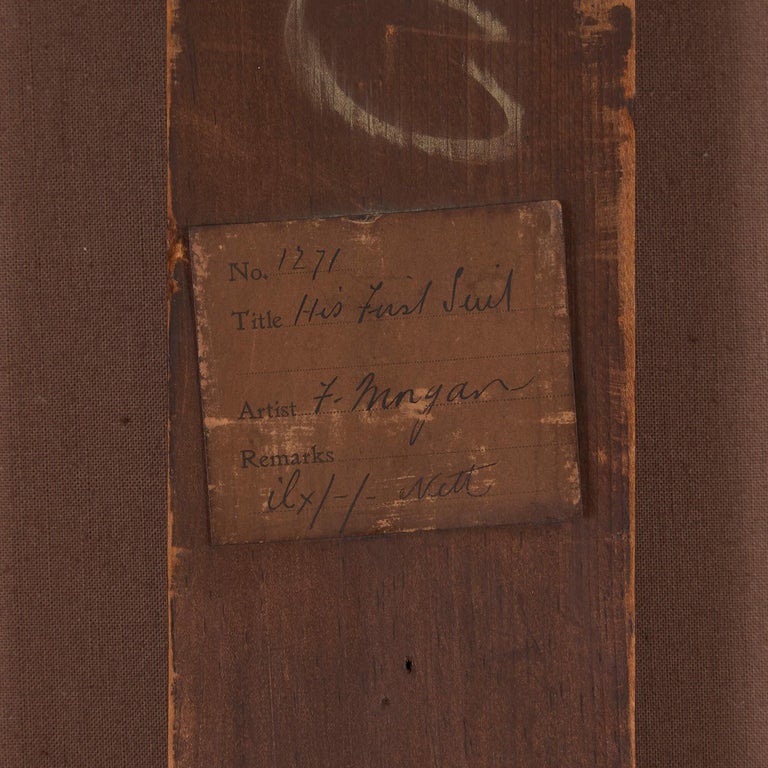 No. 1271
Title His First Suit
Artist F. Morgan
Remarks
ilx/-/- Nett